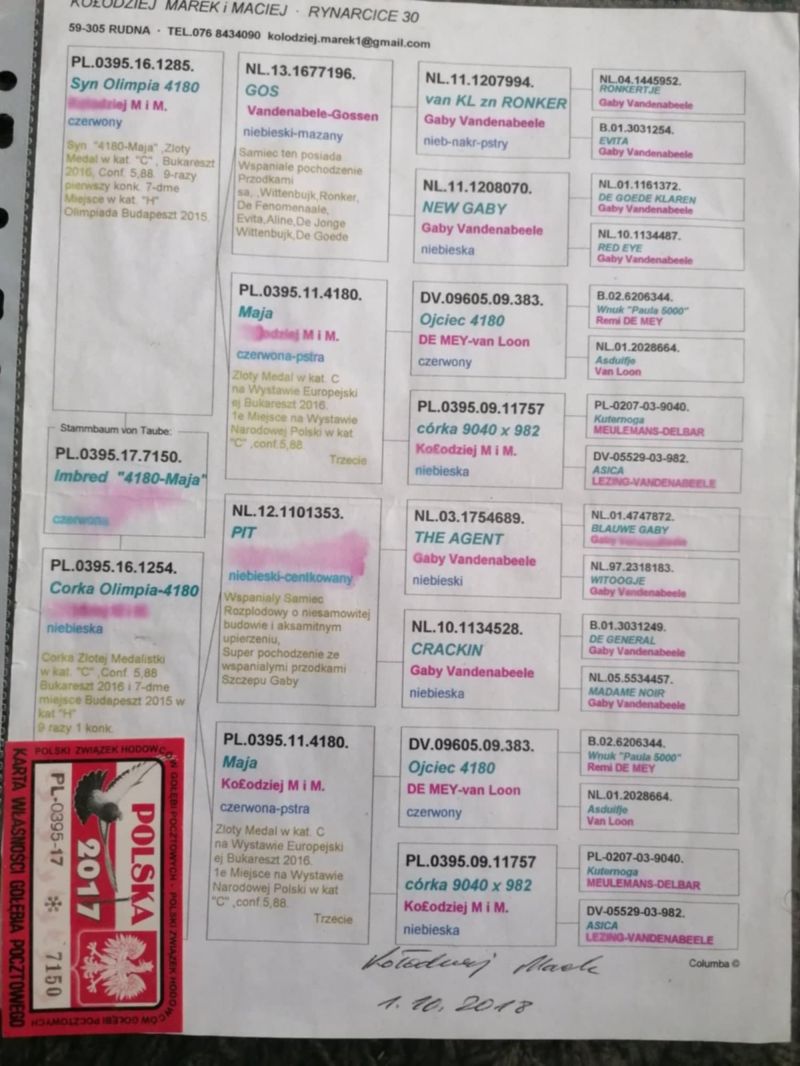 KOŁODZIEJ MAREK i MACIEJ · RYNARCICE 30
59-305 RUDNA · TEL.076 8434090 kolodziej.marek1@gmail.com
PL.0395.16.1285.
Syn Olimpia 4180
M i M.
czerwony
Syn "4180-Maja" ,Zloty
Medal w kat. "C" , Bukareszt
2016, Conf. 5,88. 9-razy
pierwszy konk. 7-dme
Miejsce w kat. "H"
Olimpiada Budapeszt 2015.
Stammbaum von Taube:
PL.0395.17.7150.
Imbred "4180-Maja"
czerwona
PL.0395.16.1254.
Corka Olimpia-4180
niebieska
Corka Zlotej Medalistki
w kat. "C" ,Conf. 5,88
Bukareszt 2016 i 7-dme
miejsce Budapeszt 2015 w
kat "H"
9 razy 1 konk.
NL.13.1677196.
GOS
Vandenabele-Gossen
niebieski-mazany
Samiec ten posiada
Wspaniale pochodzenie
Przodkami
sa, ,Wittenbujk,Ronker,
De Fenomenaale,
Evita,Aline,De Jonge
Wittenbujk,De Goede
PL.0395.11.4180.
Maja
M i M.
czerwona-pstra
Zloty Medal w kat. C
na Wystawie Europejski
ej Bukareszt 2016.
1e Miejsce na Wystawie
Narodowej Polski w kat
"C" ,conf.5,88.
Trzecie
NL.12.1101353.
PIT
niebieski-centkowany
Wspanialy Samiec
Rozplodowy o niesamowitej
budowie i aksamitnym
upierzeniu,
Super pochodzenie ze
wspanialymi przodkami
Szczepu Gaby
PL.0395.11.4180.
Maja
Ko£odziej M i M.
czerwona-pstra
Zloty Medal w kat. C
na Wystawie Europejski
ej Bukareszt 2016.
1e Miejsce na Wystawie
Narodowej Polski w kat
"C" ,conf.5,88.
Trzecie
NL.11.1207994.
van KL zn RONKER
Gaby Vandenabeele
nieb-nakr-pstry
NL.11.1208070.
NEW GABY
Gaby Vandenabeele
niebieska
DV.09605.09.383.
Ojciec 4180
DE MEY-van Loon
czerwony
PL.0395.09.11757
córka 9040 x 982
Ko£odziej M i M.
niebieska
NL.03.1754689.
THE AGENT
Gaby Vandenabeele
niebieski
NL.10.1134528.
CRACKIN
Gaby Vandenabeele
niebieska
DV.09605.09.383.
Ojciec 4180
DE MEY-van Loon
czerwony
PL.0395.09.11757
córka 9040 x 982
Ko£odziej M i M.
niebieska
NL.04.1445952.
RONKERTJE
Gaby Vandenabeele
B.01.3031254.
EVITA
Gaby Vandenabeele
NL.01.1161372.
DE GOEDE KLAREN
Gaby Vandenabeele
NL.10.1134487.
RED EYE
Gaby Vandenabeele
B.02.6206344.
Wnuk "Paula 5000"
Remi DE MEY
NL.01.2028664.
Asduifje
Van Loon
PL-0207-03-9040.
Kuternoga
MEULEMANS-DELBAR
DV-05529-03-982.
ASICA
LEZING-VANDENABEELE
NL.01.4747872.
BLAUWE GABY
Gaby
NL.97.2318183.
WITOOGJE
Gaby Vandenabeele
B.01.3031249.
DE GENERAL
Gaby Vandenabeele
NL.05.5534457.
MADAME NOIR
Gaby Vandenabeele
B.02.6206344.
Wnuk "Paula 5000"
Remi DE MEY
NL.01.2028664.
Asduifje
Van Loon
PL-0207-03-9040.
Kuternoga
MEULEMANS-DELBAR
DV-05529-03-982.
ASICA
LEZING-VANDENABEELE
Columba ©
Kołodziej Marek
1.10.2018
POLSKI ZWIĄZEK HODOWCÓW GOŁĘBI POCZTOWYCH · POLSKI ZWIĄZEK HODOWCÓW GOŁĘBI POCZTOWYCH
KARTA WŁASNOŚCI GOŁĘBIA POCZTOWEGO
POLSKA
2017
PL-0395-17 * 7150